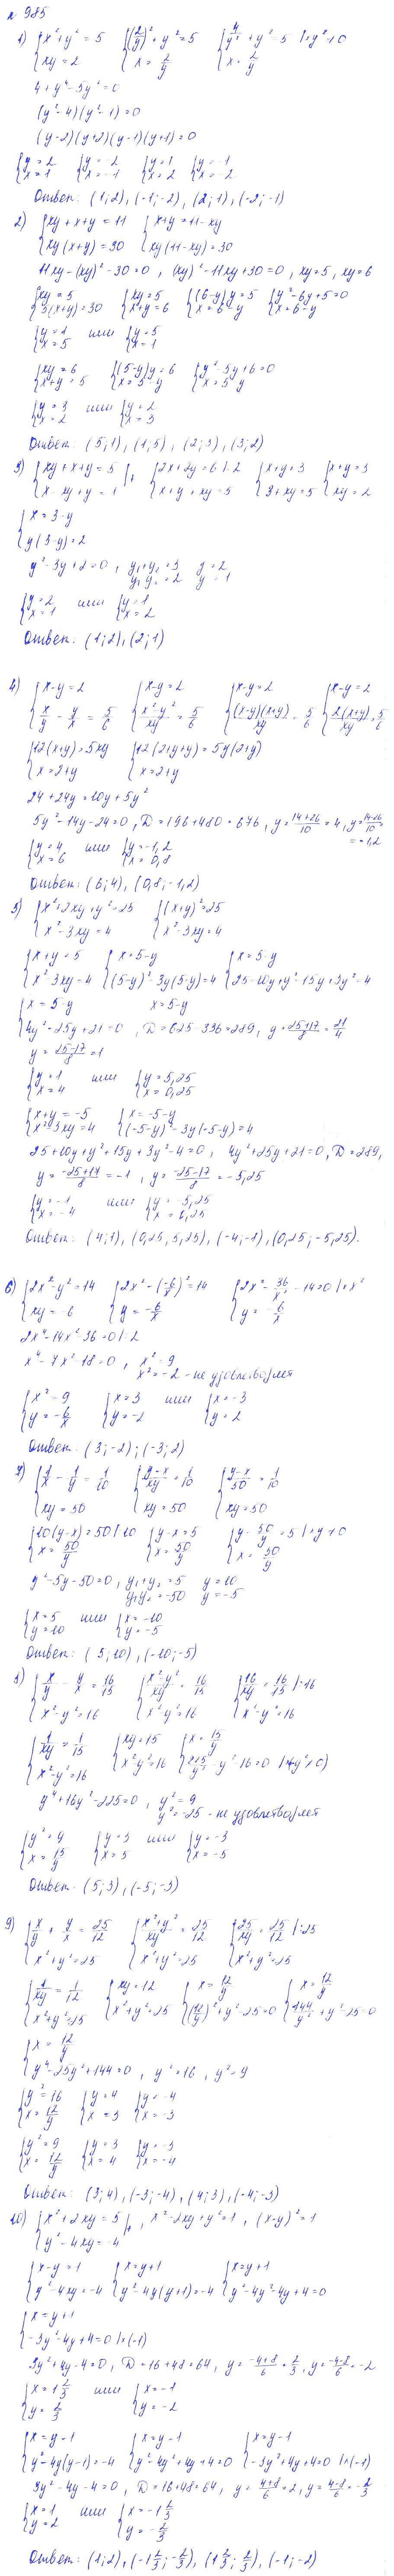 № 985
1) {x²+y²=5 {xy=2 {(2/y)²+y²=5 {x=2/y {4/y²+y²=5 |·y²≠0 {x=2/y
4+y⁴-5y²=0
(y²-4)(y²-1)=0
(y-2)(y+2)(y-1)(y+1)=0
{y=2 {x=1 {y=-2 {x=-1 {y=1 {x=2 {y=-1 {x=-2
Ответ: (1;2), (-1;-2), (2;1), (-2;-1)
2) {xy+x+y=11 {xy(x+y)=30 {x+y=11-xy {xy(11-xy)=30
11xy-(xy)²-30=0, (xy)²-11xy+30=0, xy=5, xy=6
{xy=5 {5(x+y)=30 {xy=5 {x+y=6 {(6-y)y=5 {x=6-y {y²-6y+5=0 {x=6-y
{y=1 {x=5 или {y=5 {x=1
{xy=6 {x+y=5 {(5-y)y=6 {x=5-y {y²-5y+6=0 {x=5-y
{y=3 {x=2 или {y=2 {x=3
Ответ: (5;1), (1;5), (2;3), (3;2)
3) {xy+x+y=5 {x-xy+y=1 |+ {2x+2y=6 |:2 {x+y+xy=5 {x+y=3 {3+xy=5 {x+y=3 {xy=2
{x=3-y {y(3-y)=2
y²-3y+2=0, y₁+y₂=3 y₁y₂=2 y=2 y=1
{y=2 {x=1 или {y=1 {x=2
Ответ: (1;2), (2;1)
4) {x-y=2 {x/y-y/x=5/6 {x-y=2 {x²-y²/xy=5/6 {x-y=2 {(x-y)(x+y)/xy=5/6 {x-y=2 {2(x+y)/xy=5/6
{12(x+y)=5xy {x=2+y {12(2+y+y)=5y(2+y) {x=2+y
24+24y=10y+5y²
5y²-14y-24=0, D=196+480=676, y=14+26/10=4, y=14-26/10=-1,2
{y=4 {x=6 или {y=-1,2 {x=0,8
Ответ: (6;4), (0,8;-1,2)
5) {x²+2xy+y²=25 {x²-3xy=4 {(x+y)²=25 {x²-3xy=4
{x+y=5 {x²-3xy=4 {x=5-y {(5-y)²-3y(5-y)=4 {x=5-y {25-10y+y²-15y+3y²=4
{x=5-y {4y²-25y+21=0 x=5-y, D=625-336=289, y=25+17/8=21/4
y=25-17/8=1
{y=1 {x=4 или {y=5,25 {x=0,25
{x+y=-5 {x²-3xy=4 {x=-5-y {(-5-y)²-3y(-5-y)=4
25+10y+y²+15y+3y²-4=0, 4y²+25y+21=0, D=289,
y=-25+17/8=-1, y=-25-17/8=-5,25
{y=-1 {x=-4 или {y=-5,25 {x=0,25
Ответ: (4;1), (0,25;5,25), (-4;-1), (0,25;-5,25).
6) {2x²-y²=14 {xy=-6 {2x²-(-6/x)²=14 {y=-6/x {2x²-36/x²-14=0 |·x² {y=-6/x
2x⁴-14x²-36=0 |:2
x⁴-7x²-18=0, x²=9 x²=-2 - не удовлетворяет
{x²=9 {y=-6/x {x=3 {y=-2 или {x=-3 {y=2
Ответ: (3;-2); (-3;2)
7) {1/x-1/y=1/10 {xy=50 {y-x/xy=1/10 {xy=50 {y-x/50=1/10 {xy=50
{10(y-x)=50 |:10 {x=50/y {y-x=5 {x=50/y {y-50/y=5 |·y≠0 {x=50/y
y²-5y-50=0, y₁+y₂=5 y₁y₂=-50 y=10 y=-5
{x=5 {y=10 или {x=-10 {y=-5
Ответ: (5;10), (-10;-5)
8) {x/y-y/x=16/15 {x²-y²=16 {x²-y²/xy=16/15 {x²-y²=16 {16/xy=16/15 |:16 {x²-y²=16
{1/xy=1/15 {x²-y²=16 {xy=15 {x²-y²=16 {x=15/y {225/y²-y²-16=0 |·(-y²≠0)
y⁴+16y²-225=0, y²=9 y²=-25 - не удовлетворяет
{y²=9 {x=15/y {y=3 {x=5 или {y=-3 {x=-5
Ответ: (5;3), (-5;-3)
9) {x/y+y/x=25/12 {x²+y²=25 {x²+y²/xy=25/12 {x²+y²=25 {25/xy=25/12 |:25 {x²+y²=25
{1/xy=1/12 {x²+y²=25 {xy=12 {x²+y²=25 {x=12/y {(12/y)²+y²-25=0 {x=12/y {144/y²+y²-25=0
{x=12/y {y⁴-25y²+144=0, y²=16, y²=9
{y²=16 {x=12/y {y=4 {x=3 {y=-4 {x=-3
{y²=9 {x=12/y {y=3 {x=4 {y=-3 {x=-4
Ответ: (3;4), (-3;-4), (4;3), (-4;-3)
10) {x²+2xy=5 {y²-4xy=-4 |+, x²-2xy+y²=1, (x-y)²=1
{x-y=1 {y²-4xy=-4 {x=y+1 {y²-4y(y+1)=-4 {x=y+1 {y²-4y²-4y+4=0
{x=y+1 {-3y²-4y+4=0 |·(-1)
3y²+4y-4=0, D=16+48=64, y=-4+8/6=2/3, y=-4-8/6=-2
{x=1 2/3 {y=2/3 или {x=-1 {y=-2
{x=y-1 {y²-4y(y-1)=-4 {x=y-1 {y²-4y²+4y+4=0 {x=y-1 {-3y²+4y+4=0 |·(-1)
3y²-4y-4=0, D=16+48=64, y=4+8/6=2, y=4-8/6=-2/3
{x=1 {y=2 или {x=-1 2/3 {y=-2/3
Ответ: (1;2), (-1 2/3;-2/3), (1 2/3;2/3), (-1;-2)